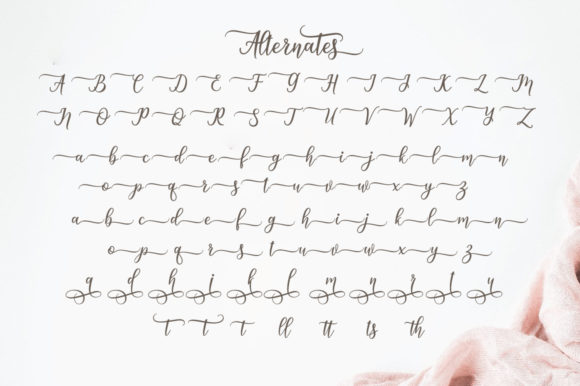 Alternates
A B C D E F G H I J K L M
N O P Q R S T U V W X Y Z
a b c d e f g h i j k l m n
o p q r s t u v w x y z
a b c d e f g h i j k l m n
o p q r s t u v w x y z
a d h i k l m n r t y
t t t ll tt ts th